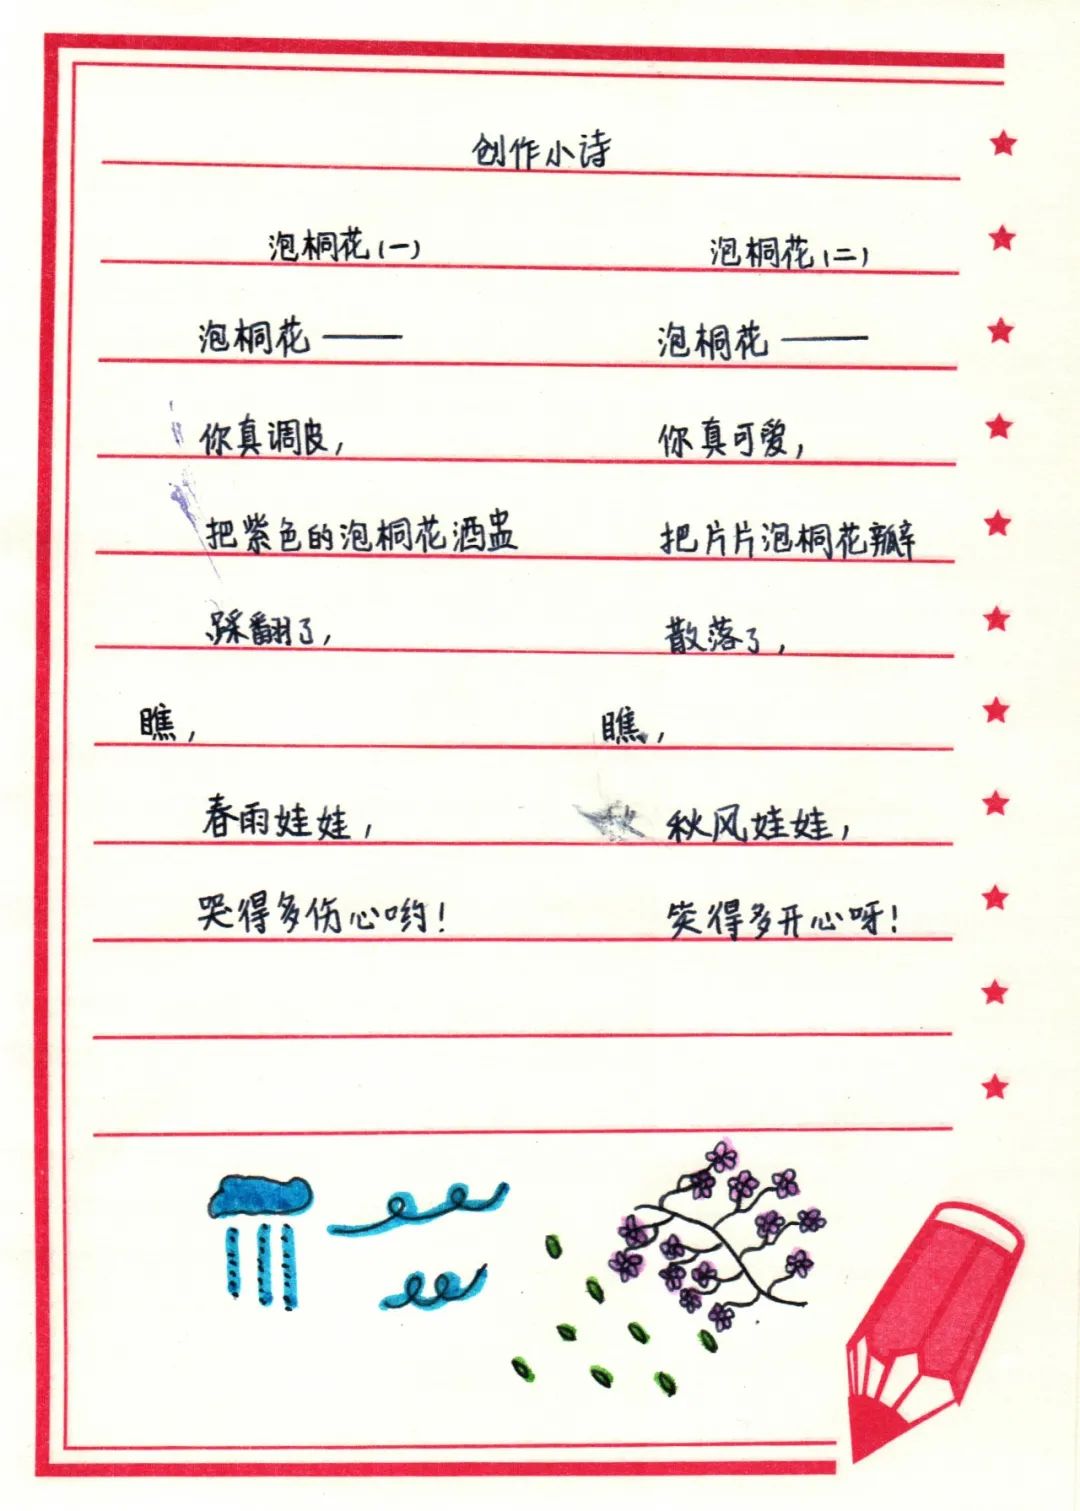 创作小诗
泡桐花(一)
泡桐花——
你真调皮,
把紫色的泡桐花酒盅
踩翻了,
瞧,
春雨娃娃,
哭得多伤心哟!
泡桐花(二)
泡桐花——
你真可爱,
把片片泡桐花瓣
散落了,
瞧,
秋风娃娃,
笑得多开心呀!